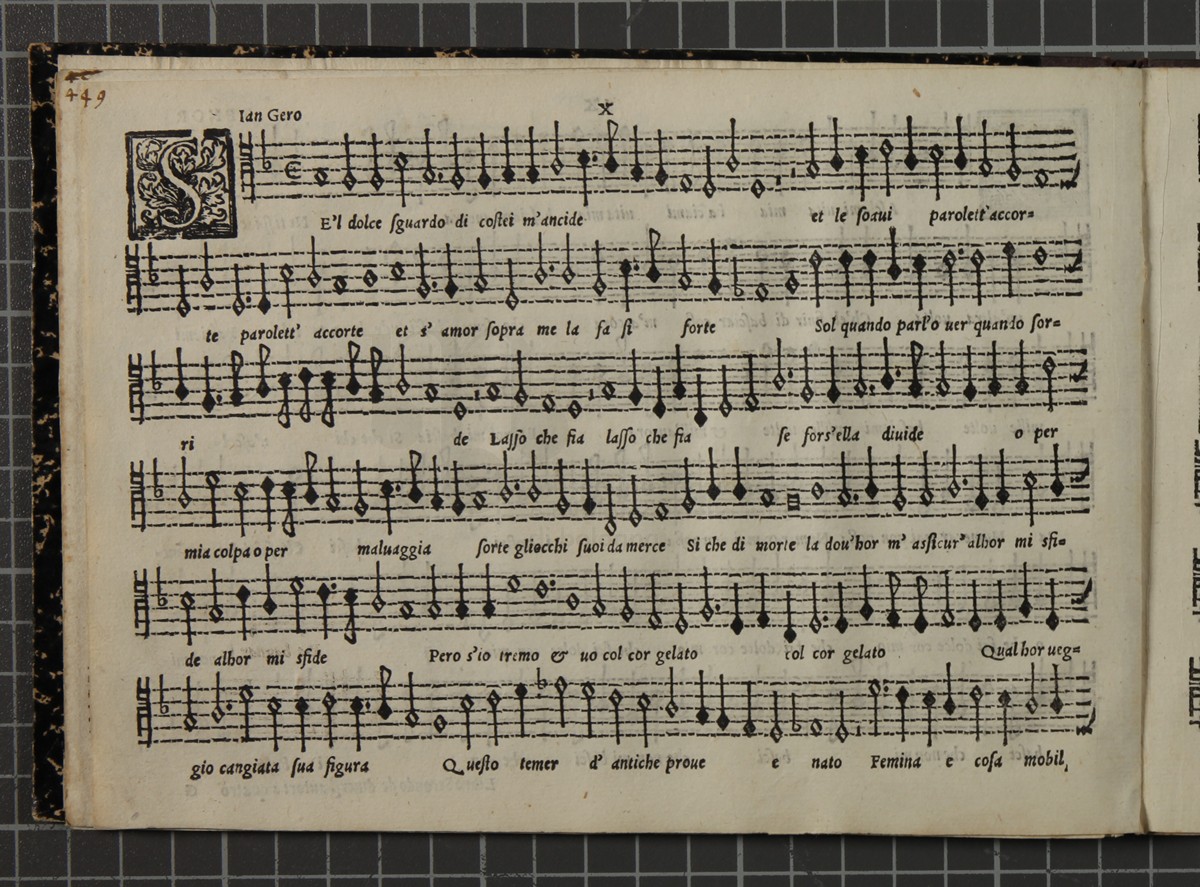 449
Ian Gero
X
S E'l dolce ſguardo di coſtei m'ancide et le ſoaui parolett'accor=
te parolett' accorte et s' amor ſopra me la fa ſi forte Sol quando parl'o uer quando ſor=
ri de Laſſo che fia laſſo che fia ſe fors'ella diuide o per
mia colpa o per maluaggia ſorte gliocchi ſuoi da merce Si che di morte la dou'hor m' aſſicur' alhor mi sfi=
de alhor mi sfide Pero s'io tremo & uo col cor gelato col cor gelato Qual hor ueg=
gio cangiata ſua figura Queſto temer d' antiche proue e nato Femina e coſa mobil,